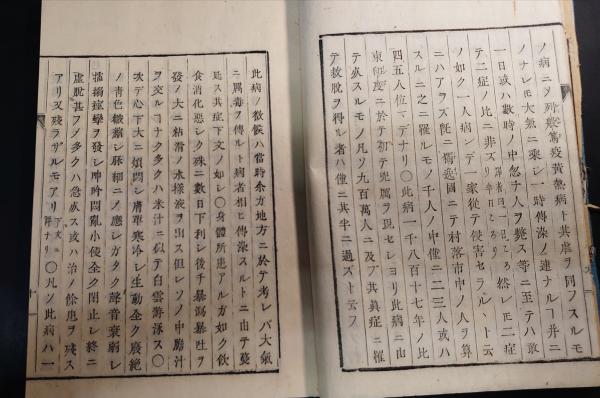 ノ病ニメ列斃篤疫黄熱病ト其虐ヲ同フスルモ
ノナレモ大氣ニ乘シ一時傳染ノ連ナルヿ并ニ
一日或ハ數時ノ中忽チ人ヲ斃ス等ニ至テハ敢
テ二症ノ比ニ非ズ
ノ如ク一人病シテ一家從テ侵害セラルヽト云
ニハアラズ既ニ
スルニ之ニ罹ルモノ千人ノ中僅ニ二三人或ハ
四五人位マデナリ〇此病一千八百十七年ノ比
東印度ニ於テ初テ兇厲ヲ現セシヨリ此病ニ由
テ死スルモノ凡ソ九百萬人ニ及ブ其眞症ニ罹
テ救脱ヲ得ル者ハ僅ニ其半ニ過ズト云フ
此病ノ徴候ハ當時余カ地方ニ於テ考レバ大氣
ニ厲毒ヲ傳ルト病者相ヒ傳染スルトニ由テ蔓
延ス其症下文ノ如レ〇身體所患アル方如ク飲
食消化惡シク殊ニ數日下利シ後チ暴瀉暴吐ヲ
發ノ大ニ粘滑ノ水樣液ヲ出ス但シソノ中膽汁
ヲ交ルヿナク多クハ米汁ニ似テ白雲游泳ス〇
次デ心下大ニ煩悶シ膚革寒冷シ生動全ク廢絶
ノ青色皺縮シ脈細ニノ應シガタク聲音衰弱シ
搐搦痙攣ヲ發シ呻吟悶亂小便全ク閉止シ終ニ
虚脱甚フメ多クハ急死ス或ハ治ノ餘患ヲ殘ス
アリ又殘ラザルモアリ 下文ニ詳ナリ 〇凡ソ此病ハ一